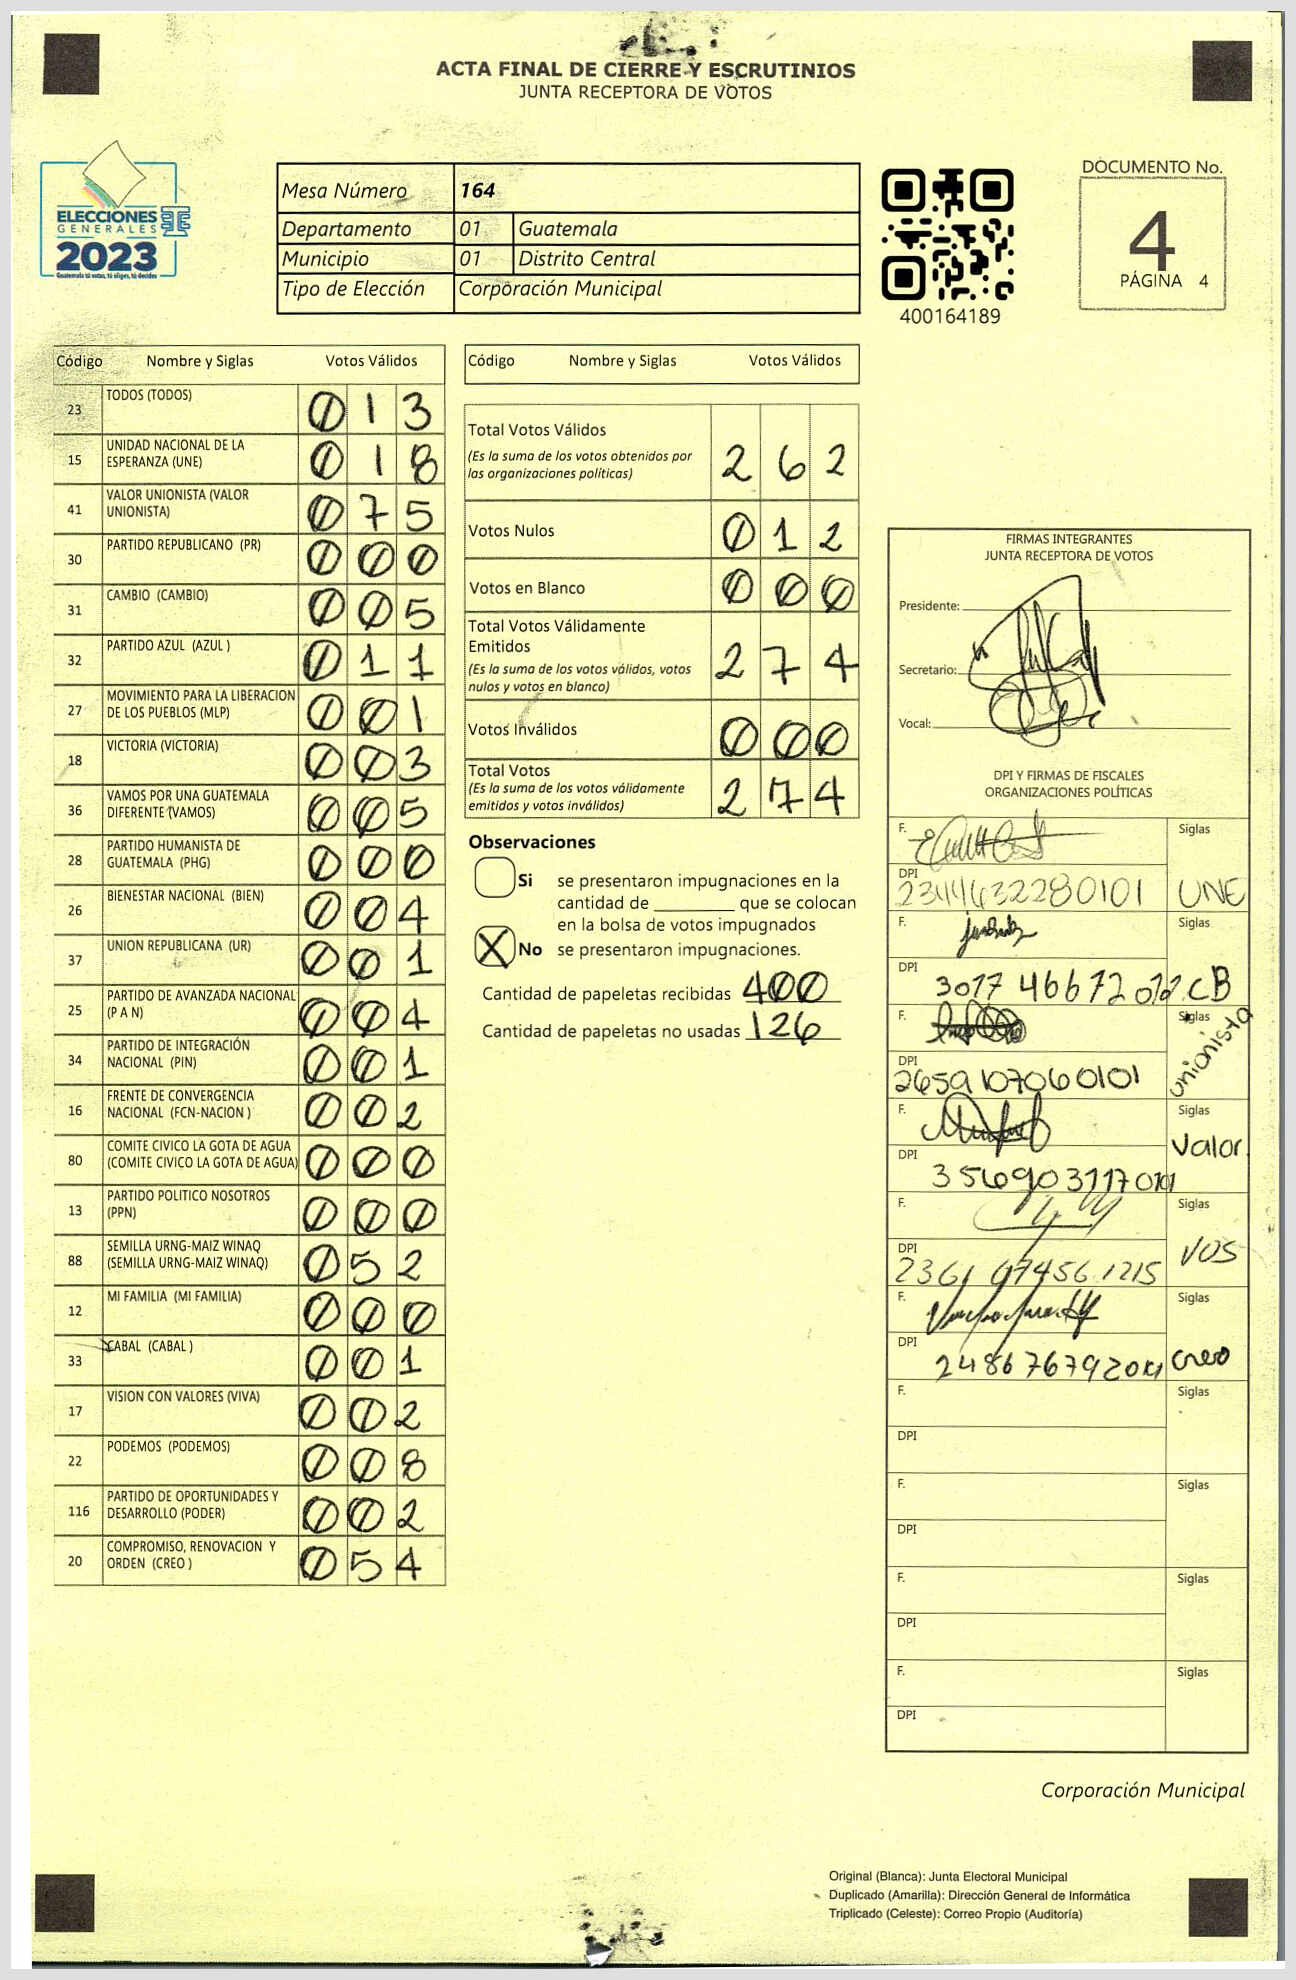 ACTA FINAL DE CIERRE Y ESCRUTINIOS
JUNTA RECEPTORA DE VOTOS
ELECCIONES
GENERALES
2023
Guatemala tú votas, tú eliges, tú decides
Mesa Número 164
Departamento 01 Guatemala
Municipio 01 Distrito Central
Tipo de Elección Corporación Municipal
400164189
DOCUMENTO No.
4
PÁGINA 4
Código Nombre y Siglas Votos Válidos
23 TODOS (TODOS) 013
15 UNIDAD NACIONAL DE LA ESPERANZA (UNE) 018
41 VALOR UNIONISTA (VALOR UNIONISTA) 075
30 PARTIDO REPUBLICANO (PR) 000
31 CAMBIO (CAMBIO) 005
32 PARTIDO AZUL (AZUL ) 011
27 MOVIMIENTO PARA LA LIBERACION DE LOS PUEBLOS (MLP) 001
18 VICTORIA (VICTORIA) 003
36 VAMOS POR UNA GUATEMALA DIFERENTE (VAMOS) 005
28 PARTIDO HUMANISTA DE GUATEMALA (PHG) 000
26 BIENESTAR NACIONAL (BIEN) 004
37 UNION REPUBLICANA (UR) 001
25 PARTIDO DE AVANZADA NACIONAL (P A N) 004
34 PARTIDO DE INTEGRACIÓN NACIONAL (PIN) 001
16 FRENTE DE CONVERGENCIA NACIONAL (FCN-NACION ) 002
80 COMITE CIVICO LA GOTA DE AGUA (COMITE CIVICO LA GOTA DE AGUA) 000
13 PARTIDO POLITICO NOSOTROS (PPN) 000
88 SEMILLA URNG-MAIZ WINAQ (SEMILLA URNG-MAIZ WINAQ) 052
12 MI FAMILIA (MI FAMILIA) 000
33 CABAL (CABAL ) 001
17 VISION CON VALORES (VIVA) 002
22 PODEMOS (PODEMOS) 008
116 PARTIDO DE OPORTUNIDADES Y DESARROLLO (PODER) 002
20 COMPROMISO, RENOVACION Y ORDEN (CREO ) 054
Código Nombre y Siglas Votos Válidos
Total Votos Válidos 262
(Es la suma de los votos obtenidos por
las organizaciones políticas)
Votos Nulos 012
Votos en Blanco 000
Total Votos Válidamente
Emitidos 274
(Es la suma de los votos válidos, votos
nulos y votos en blanco)
Votos Inválidos 000
Total Votos 274
(Es la suma de los votos válidamente
emitidos y votos inválidos)
Observaciones
Si se presentaron impugnaciones en la
cantidad de ________ que se colocan
en la bolsa de votos impugnados
X No se presentaron impugnaciones.
Cantidad de papeletas recibidas 400
Cantidad de papeletas no usadas 126
FIRMAS INTEGRANTES
JUNTA RECEPTORA DE VOTOS
Presidente:
Secretario:
Vocal:
DPI Y FIRMAS DE FISCALES
ORGANIZACIONES POLÍTICAS
F. Siglas
DPI 2344632280101 UNE
F. Siglas
DPI CB
F. Siglas
DPI 2659107060101 unionista
F. Siglas
DPI Valor
F. Siglas
DPI 2361 07456 1215 VOS
F. Siglas
DPI creo
F. Siglas
DPI
F. Siglas
DPI
F. Siglas
DPI
F. Siglas
DPI
Corporación Municipal
Original (Blanca): Junta Electoral Municipal
Duplicado (Amarilla): Dirección General de Informática
Triplicado (Celeste): Correo Propio (Auditoría)